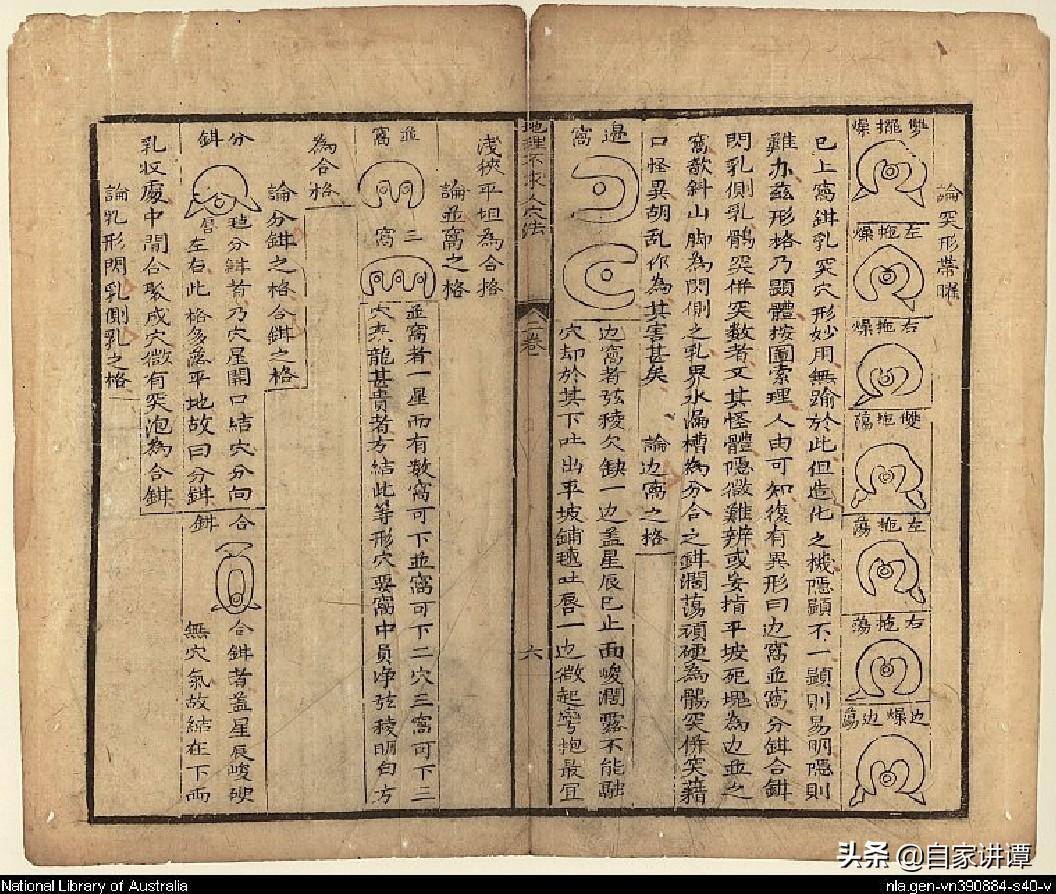 論突形帶曜
雙擺燥
左拖燥
右拖燥
雙拖蕩
左拖蕩
右拖蕩
边燥边蕩
已上窩鉗乳突穴形妙用無踰於此但造化之機隱顯不一顯則易明隱則
難办茲形格乃顕體按圖索理人由可知復有異形曰边窩並窩分鉗合鉗
閃乳側乳鶻突併突数者又其怪體隱微難辨或妄指平坡死塊為边並之
窩欹斜山脚為閃側之乳界水漏槽為分合之鉗濶蕩頑硬為鶻突併突藉
口怪異胡乱作為其害甚矣
論边窩之格
邊窩
边窩者弦稜欠缺一边盖星辰已止面峻濶露不能融
穴却於其下吐出平坡鋪毬吐唇一边微起彎抱最宜
地理不求人穴法
二卷
六
淺狹平坦為合格
論並窩之格
並窩
三窩
並窩者一星而有数窩可下並窩可下二穴三窩可下三
穴夫龍甚貴者方結此等形穴要窩中員净弦稜明白方
為合格
論分鉗之格合鉗之格
分鉗
毡唇
分鉗者乃穴星開口結穴分向
左右此格多落平地故曰分鉗
合鉗
合鉗者盖星辰峻硬
無穴氣故結在下而
乳收處中間合聚成穴微有突泡為合鉗
論乳形閃乳側乳之格
头条 @自家讲谭
National Library of Australia
nla.gen-vn390884-s40-v